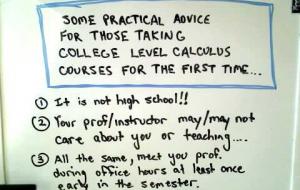 SOME PRACTICAL ADVICE
FOR THOSE TAKING
COLLEGE LEVEL CALCULUS
COURSES FOR THE FIRST TIME...
① It is not high school!!
② Your prof/instructor may/may not
care about you or teaching....
③ All the same, meet you prof.
during office hours at least once
early in the semester.